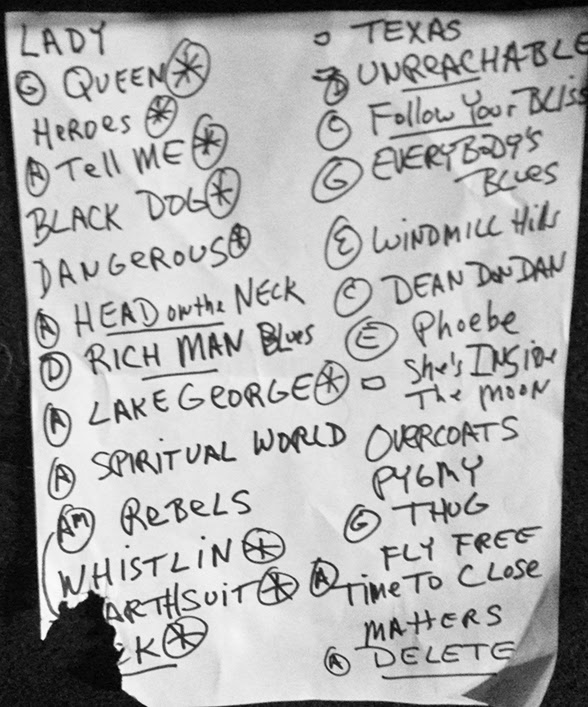 LADY
G QUEEN *
HEROES *
A TELL ME *
BLACK DOG *
DANGEROUS *
A HEAD ON THE NECK
D RICH MAN BLUES
A LAKE GEORGE *
A SPIRITUAL WORLD
AM REBELS
WHISTLIN *
ARTHSUIT *
CK *
TEXAS
D UNREACHABLE
C Follow Your BLiss
G EVERYBODY'S
BLUES
E WINDMILL Hills
C DEAN DON DAN
E Phoebe
She's INSIDE
The MOON
OVERCOATS
PYGMY
G THUG
FLY FREE
A TIME TO CLOSE
MATTERS
A DELETE